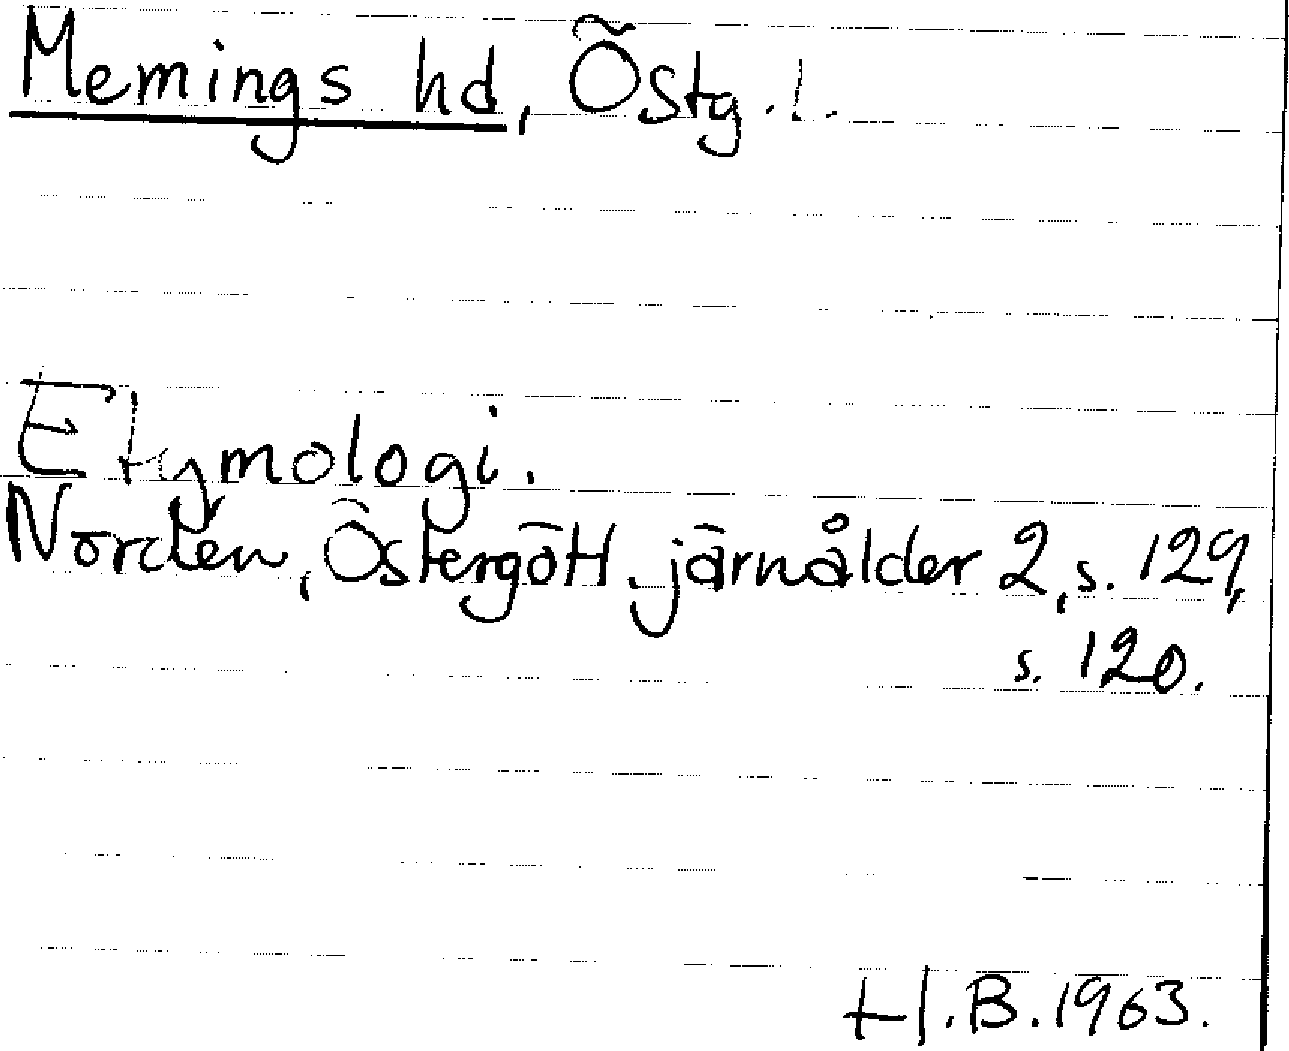 Memings hd, Östg. l.
Etymologi.
Nordén, Östergötl. järnålder 2, s. 129,
s. 120.
H.B. 1963.